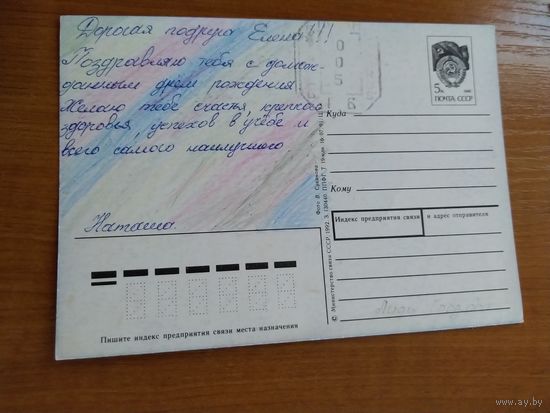 Дорогая подруга Елена!!!
Поздравляю тебя с долгож-
данным днем рождения.
Желаю тебе счастья, крепкого
здоровья, успехов в учебе и
всего самого наилучшего
Наташа.
0
0
5
5к
ПОЧТА СССР
Куда
Кому
Индекс предприятия связи и адрес отправителя
Пишите индекс предприятия связи места назначения
Фото В.
© Министерство связи СССР. 1992. З.
ay.by